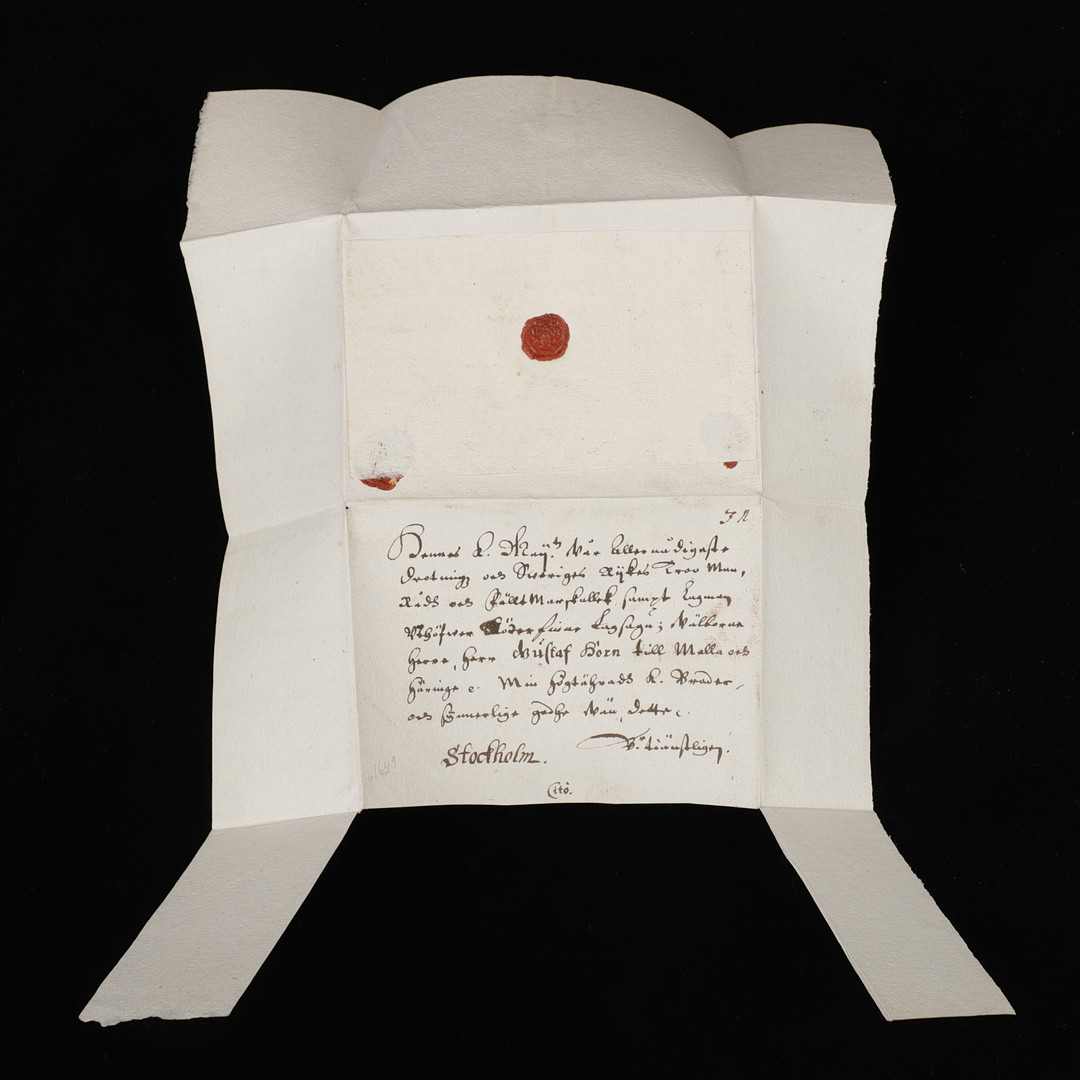 32
Hennes K. May:tz Vår Allernådigaste
Drotning och Sweriges Rijkes Troo Man,
Rådh och FälltMarskallck sampt Lagman
Uthöfwer Söderfinne Lagsagu; Välborne
herre, herr Gustaf Horn till Malla och
häringe &. Min högtährade K. Broder,
och Synnerlige godhe Vän, dette.
Stockholm. tiänstligen.
Cito.